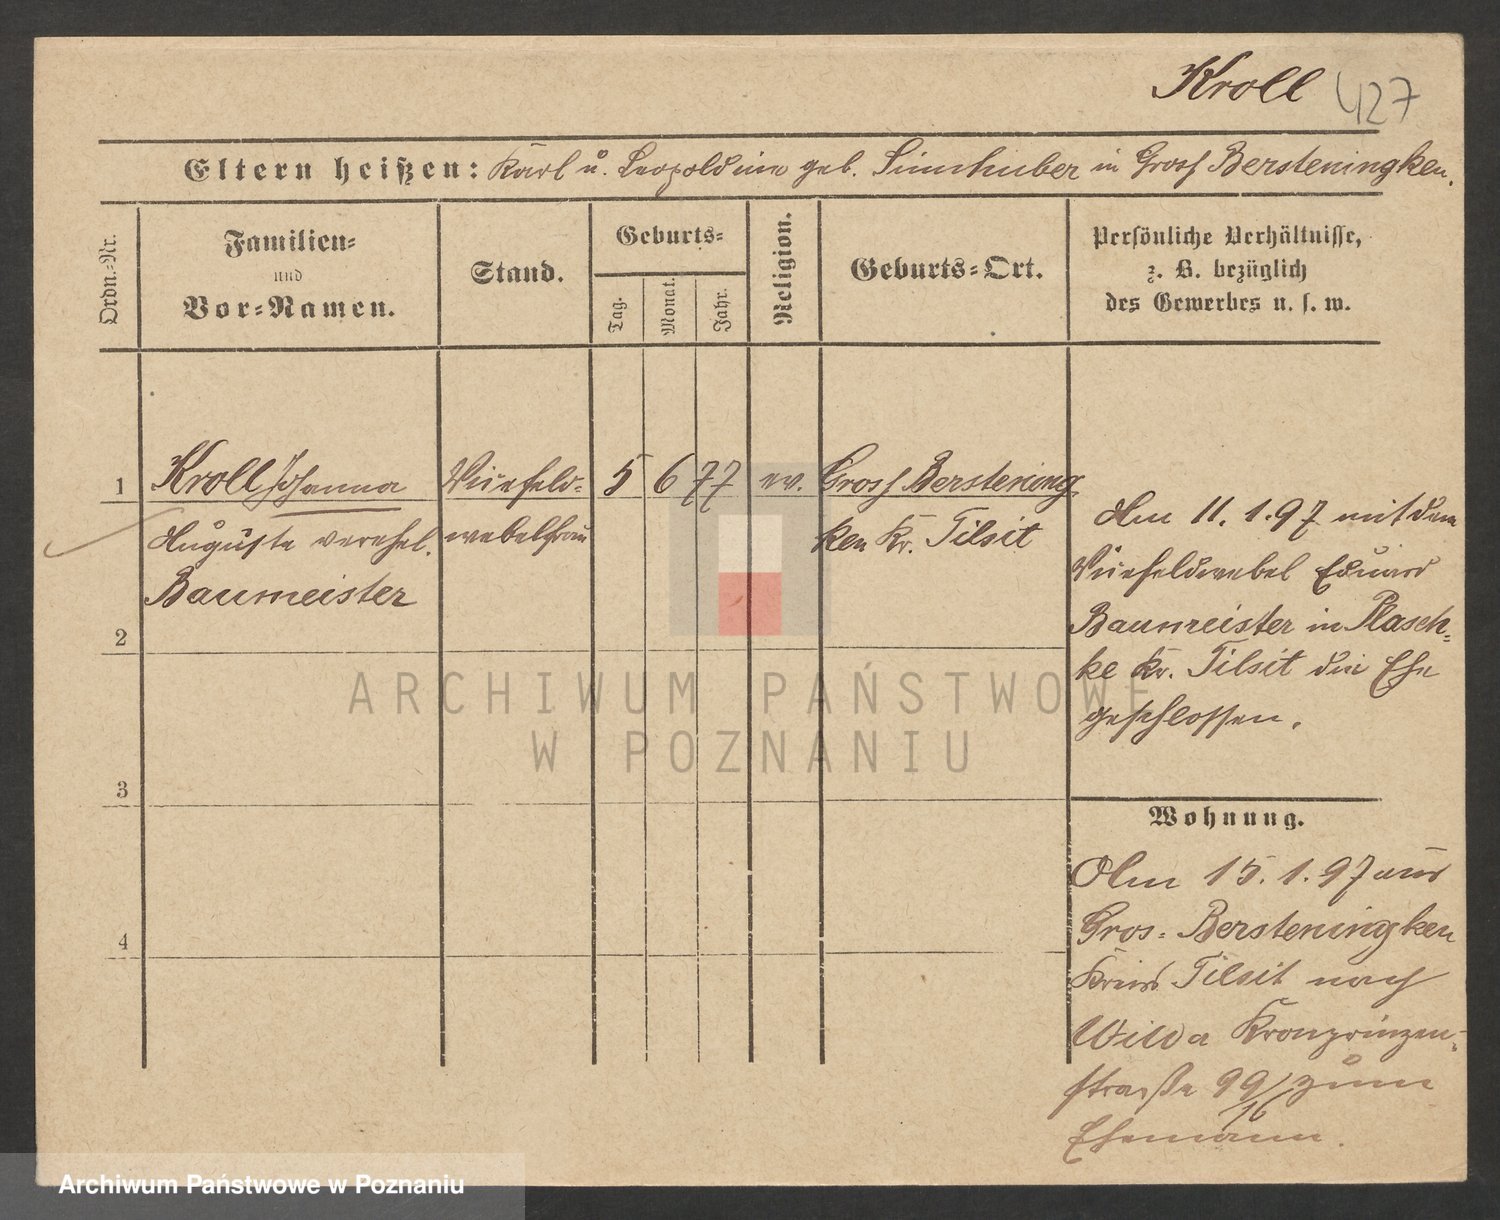 Kroll 427
Eltern heißen: Karl u. Leopoldine geb. Simhuber in Gross Bersteningken.
Ordn.-Nr.
Familien-
und
Vor-Namen.
Stand.
Geburts-
Tag.
Monat.
Jahr.
Religion.
Geburts-Ort.
Persönliche Verhältnisse,
z. B. bezüglich
des Gewerbes u. s. w.
1 Kroll Johanna Vizefeld- 5 6 77 ev. Gross Berstening
Auguste verehel. webelfrau ken Kr. Tilsit
Baumeister
2
3
4
Am 11. 1. 97 mit dem
Vizefeldwebel Eduard
Baumeister in Plasch-
ke Kr. Tilsit die Ehe
geschlossen.
Wohnung.
Am 15. 1. 97 aus
Gros- Bersteningken
Kreis Tilsit nach
Wilda Kronprinzen-
straße 99/16 zum
Ehemann.
ARCHIWUM PAŃSTWOWE
W POZNANIU
Archiwum Państwowe w Poznaniu